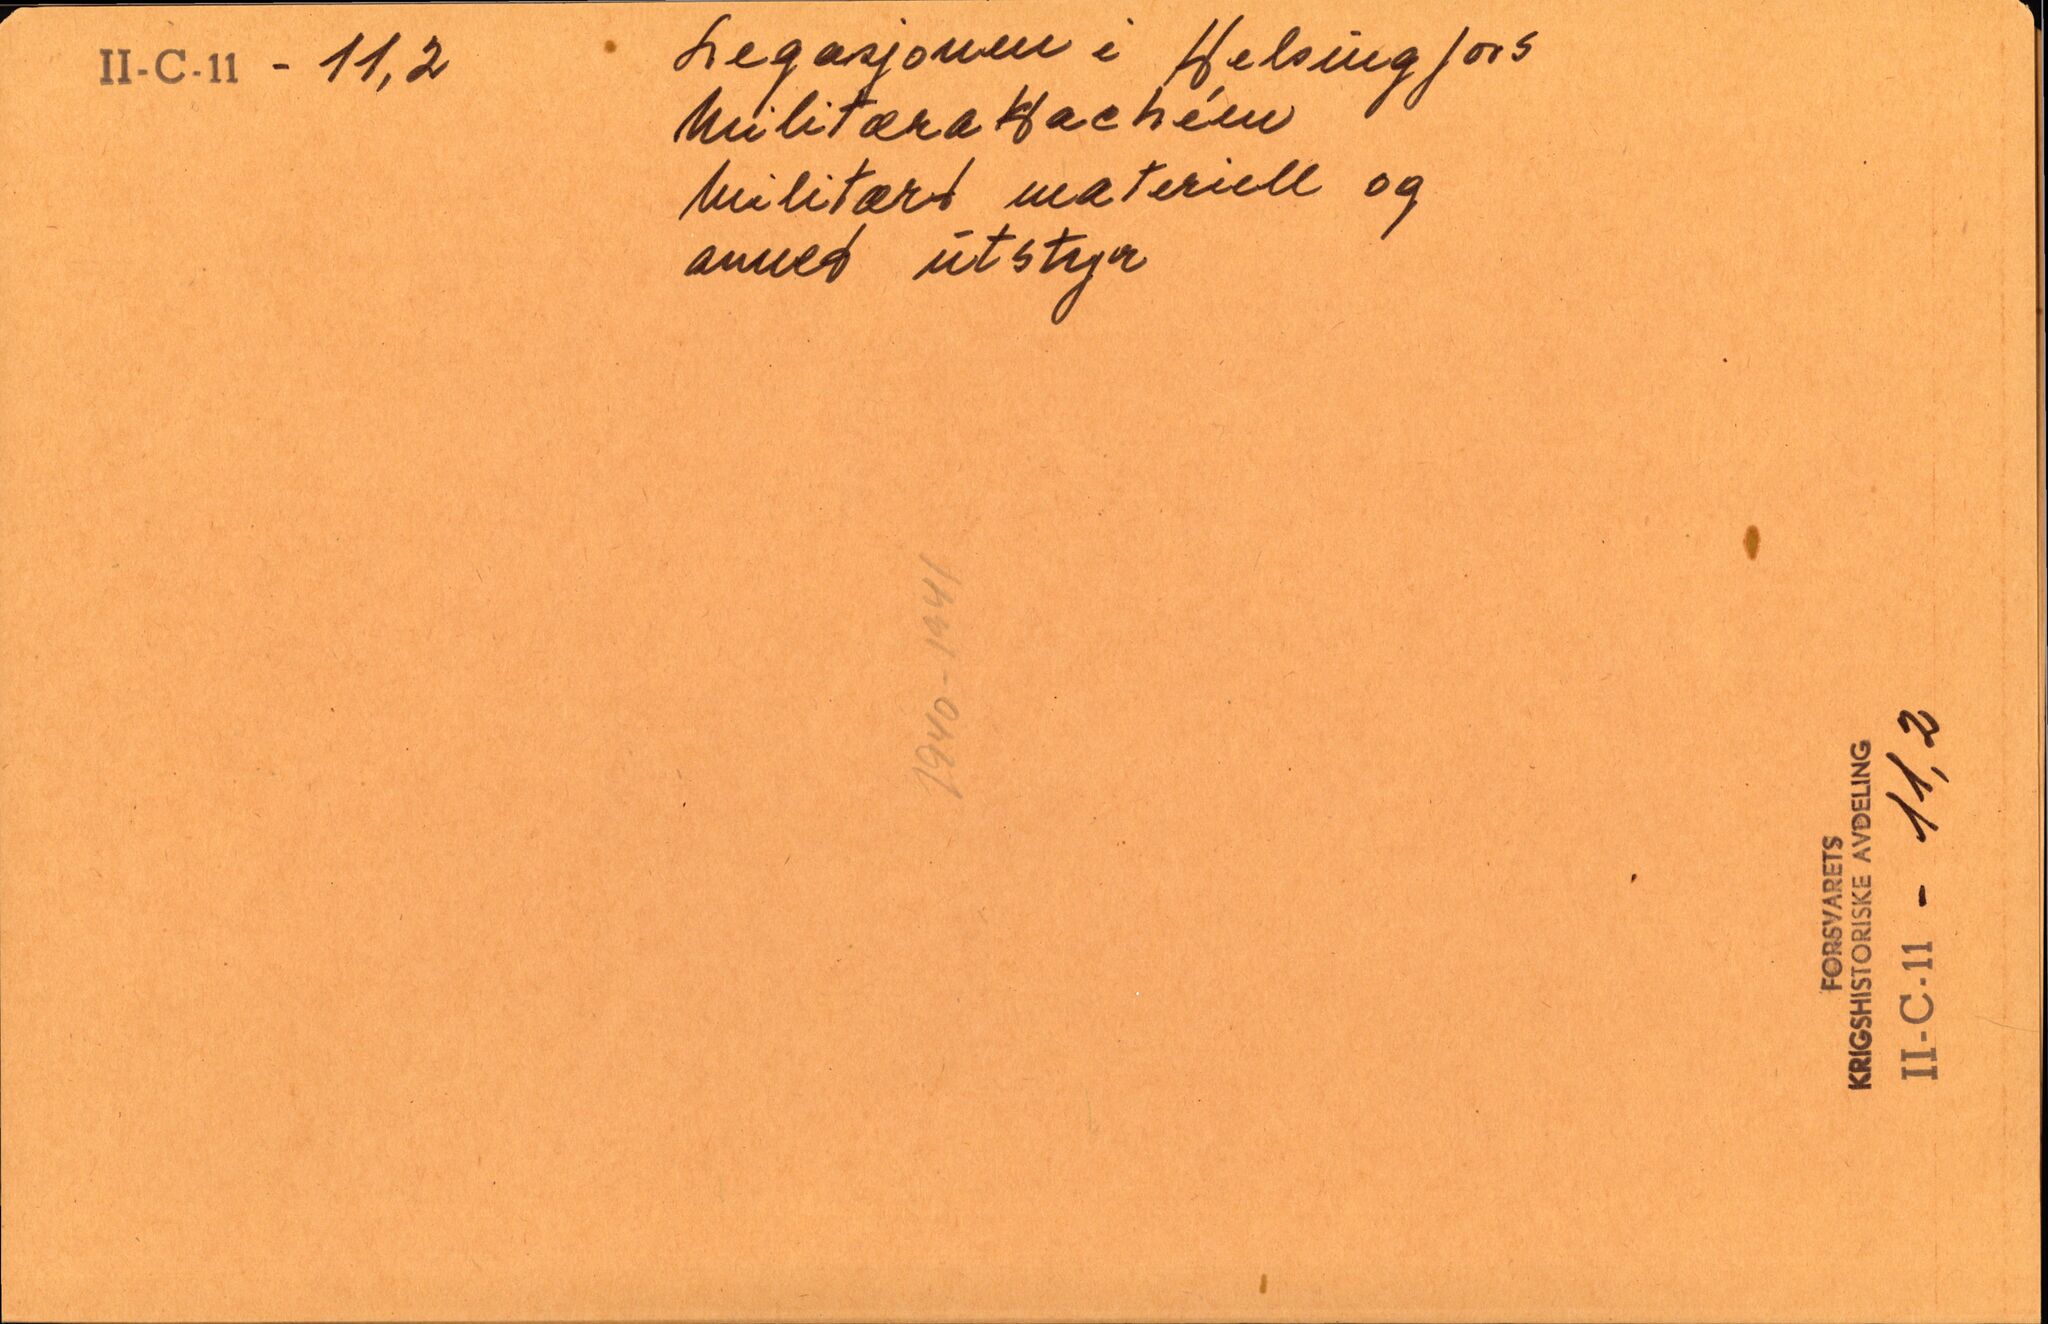 II-C-11 - 11,2
Legasjonen i Helsingfors
Militærattachéen
Militært materiell og
annet utstyr
1940-1941
FORSVARETS
KRIGSHISTORISKE AVDELING
II-C-11 - 11,2